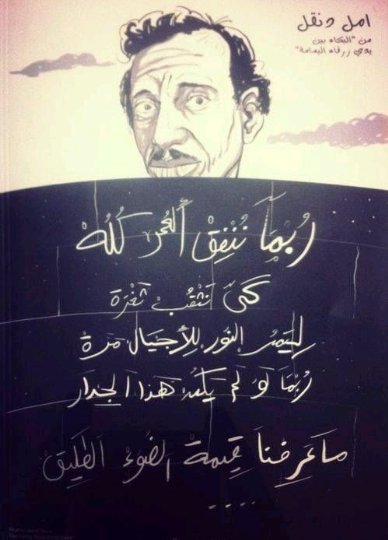 امل دنقل
من "البكاء بين
يدي زرقاء اليمامة"
رُبمَا نُنْفِقْ أَلعُمرَ كُلهُ
كَىْ نَثْقُبْ ثَغْرَة
لِيَمرُ النور للأجيال مَرة
رُبمَا لَو لَم يَكنْ هَذا الجِدار
مَا عَرِفنَا قِيمةَ الضَوءْ الطَليِقْ
....